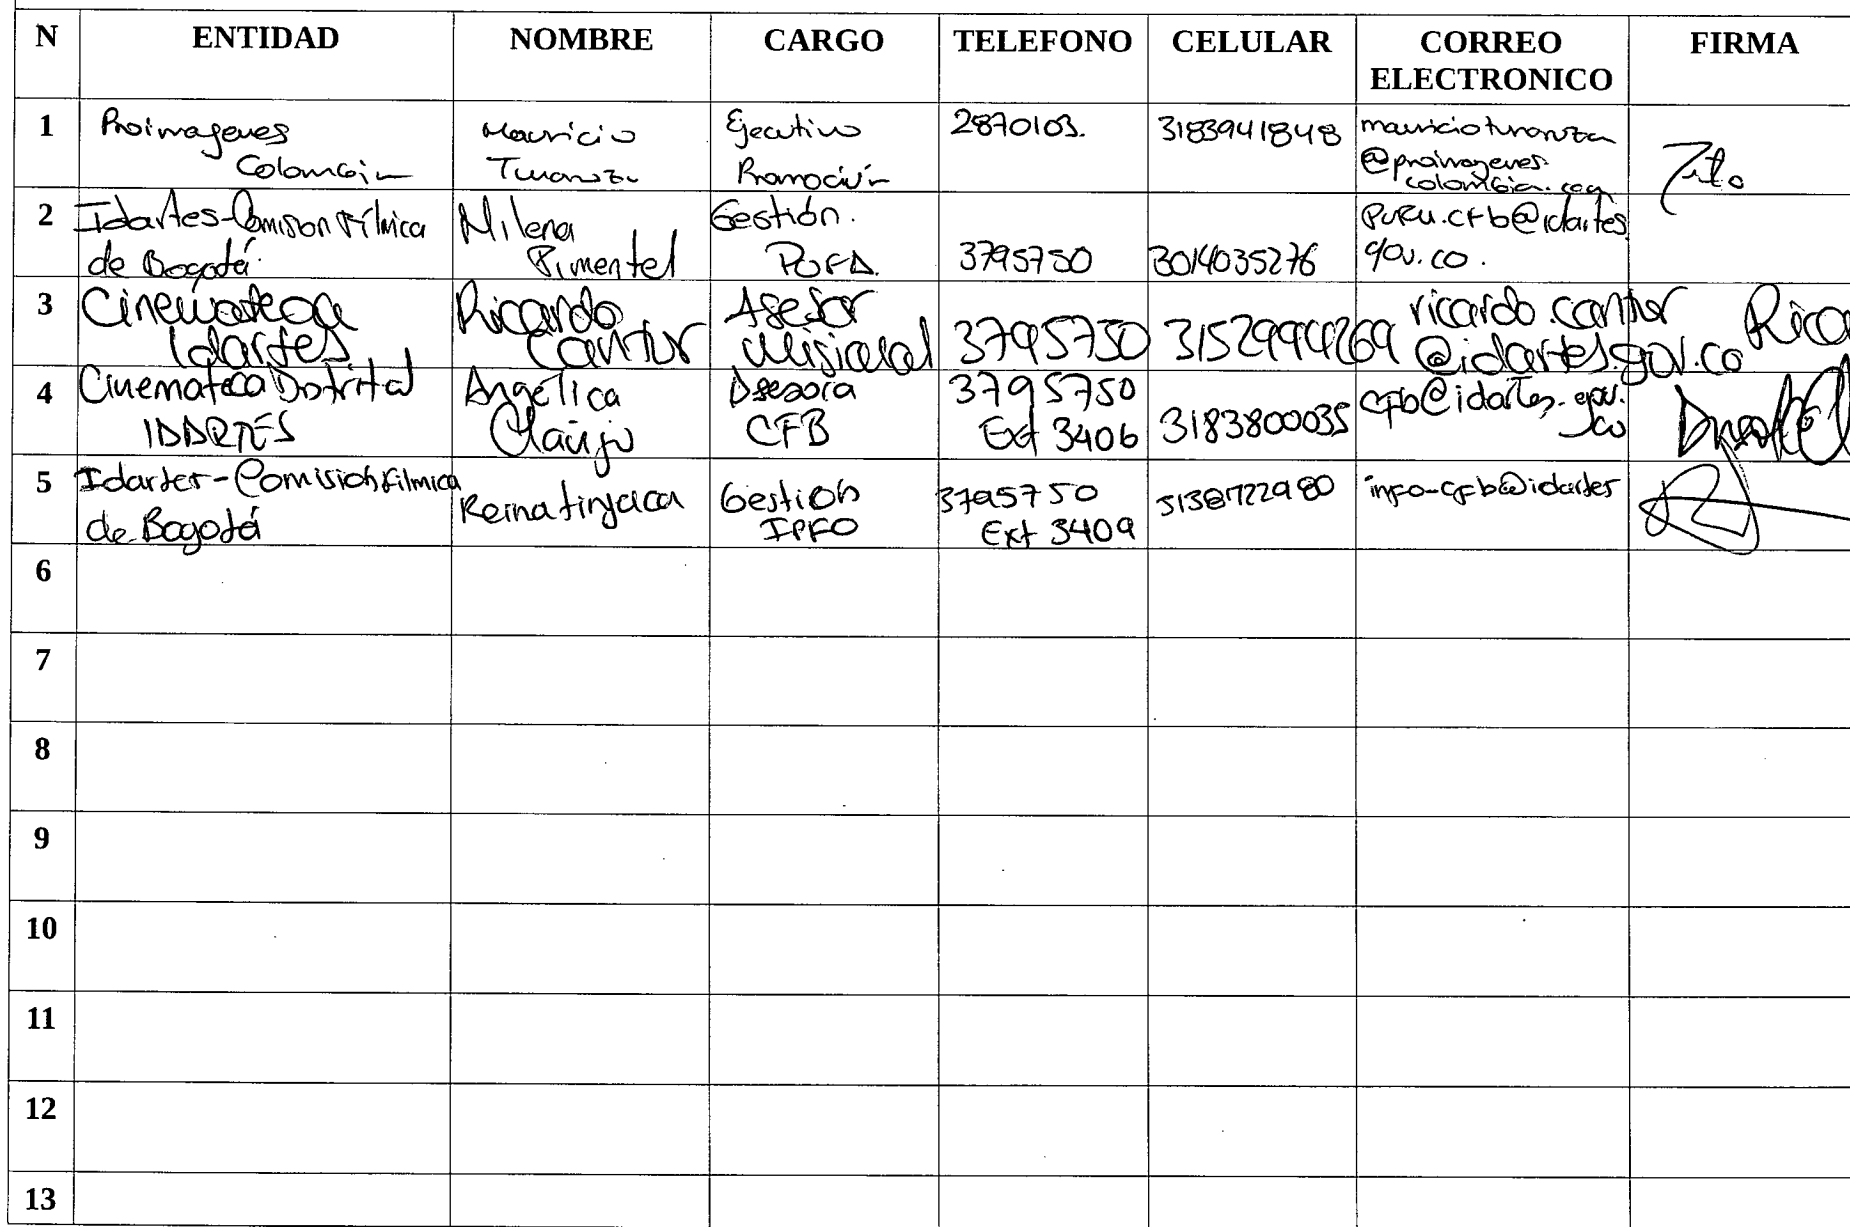 N ENTIDAD NOMBRE CARGO TELEFONO CELULAR CORREO ELECTRONICO FIRMA
1 Proimagenes Colombia Mauricio Ejecutivo Promoción 2870103. 3183941848
2 Idartes-Comision Fílmica de Bogotá. Milena Pimentel Gestión. PUFA. 3795750 3014035276 @idartes. gov.co.
3 Cinemateca Idartes Ricardo Cantor Asesor Misional 3795750 ricardo.cantor @idartes.gov.co
4 Cinemateca Distrital IDARTES Angélica Clavijo Asesora CFB 3795750 Ext 3406 3183800035 cfb@idartes.gov.co
5 Idartes-Comisión fílmica de Bogotá Reina tinjaca Gestión 3795750 Ext 3409 info-cfb@idartes
6
7
8
9
10
11
12
13